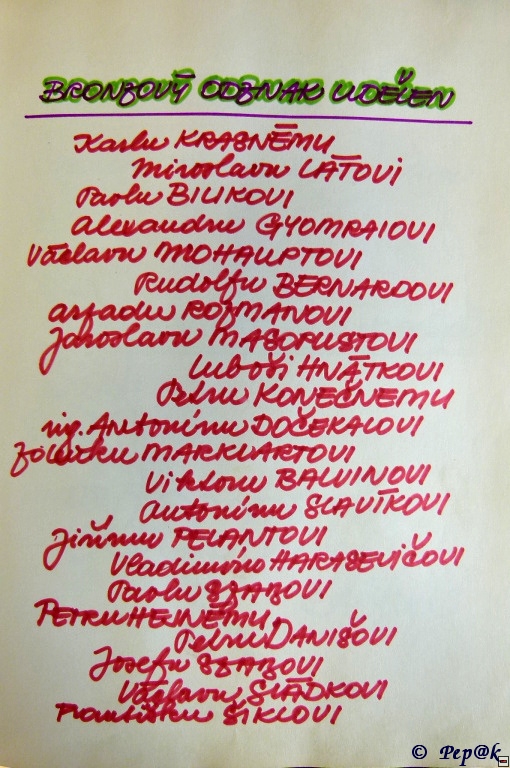 BRONZOVÝ ODZNAK UDĚLEN
Karlu KRASNÉMU
Miroslavu LÁTOVI
Pavlu BILIKOVI
Alexandru GYOMRAIOVI
Václavu MOHAUPTOVI
Rudolfu BERNARDOVI
Arpadu ROJMANOVI
Jaroslavu MASOPUSTOVI
Luboši HNÁTKOVI
Petru KONEČNEMU
ing. Antonínu DOČEKALOVI
MARKVARTOVI
Viktoru BALVINOVI
Antonínu SLAVÍKOVI
Jiřímu PELANTOVI
Vladimíru HARASEVIČOVI
Pavlu SZABOVI
PETRU HEJNÉMU
Petru DANIŠOVI
Josefu SZABOVI
Václavu SLÁDKOVI
Františku ŠIKLOVI
© Pep@k